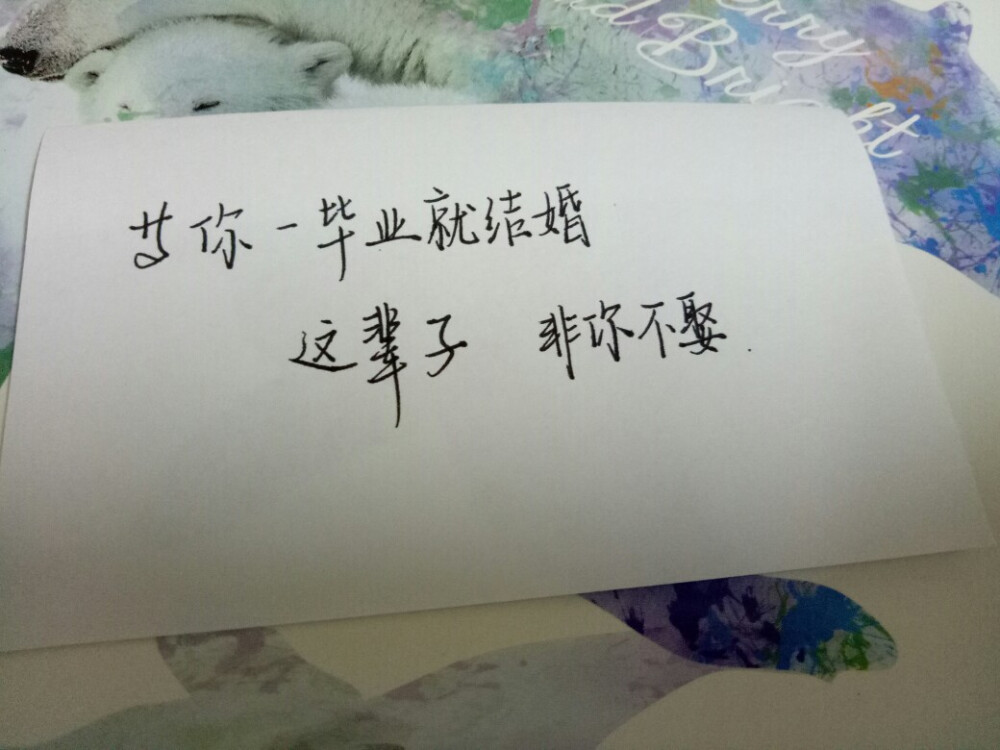 erry
nd Bright
等你一毕业就结婚
这辈子 非你不娶.